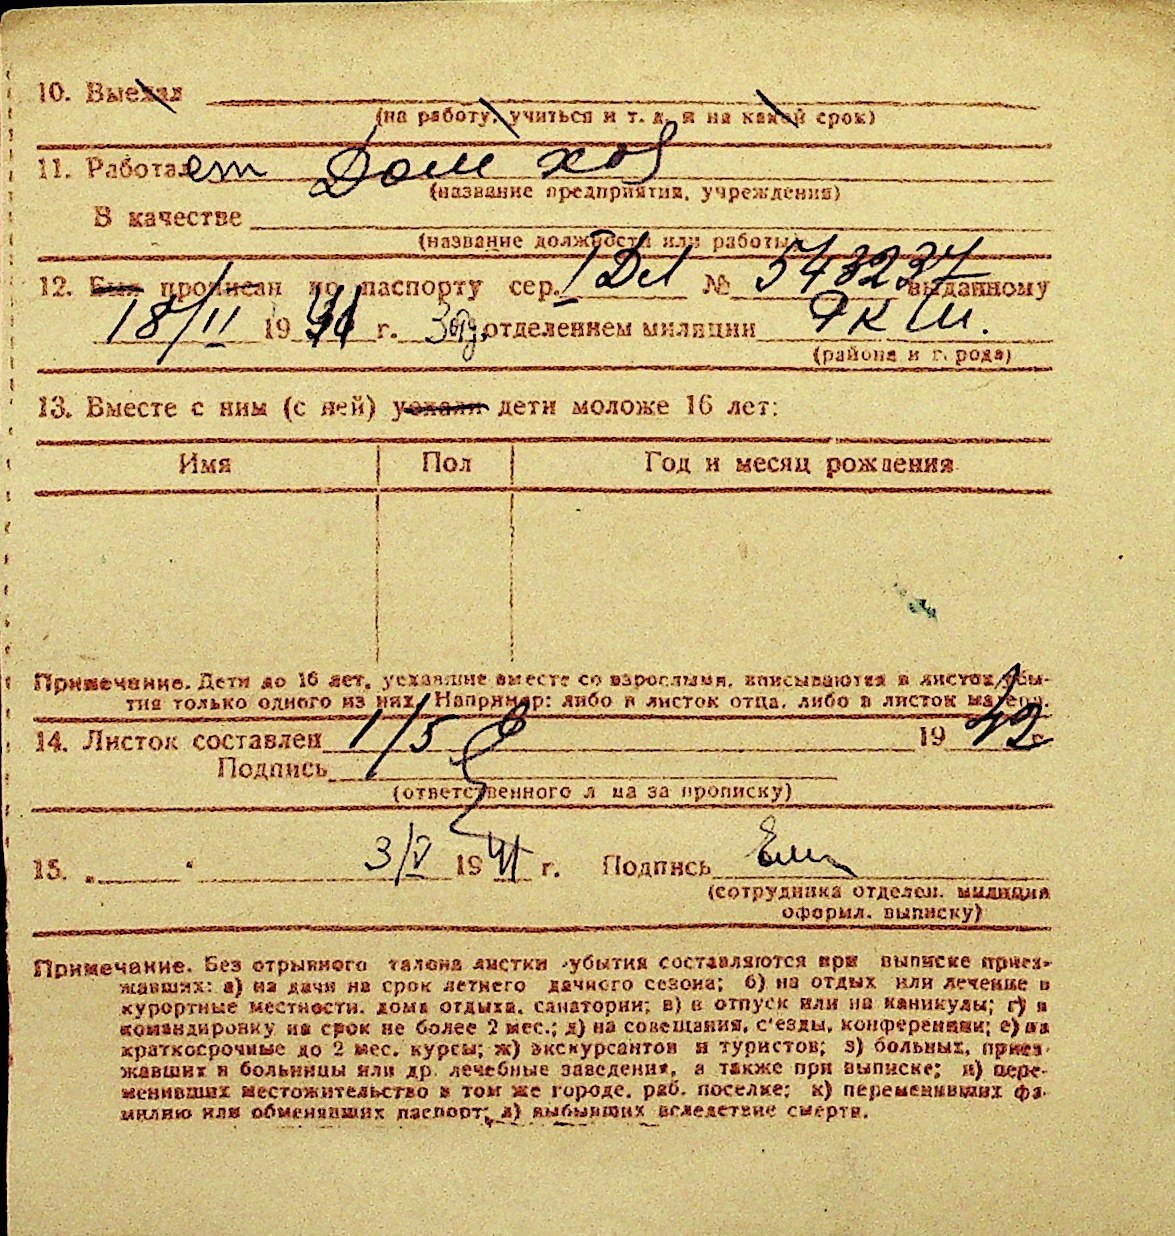 10. Выехал
(на работу, учиться и т. д. и на какой срок)
11. Работает Дом хоз
(название предприятия, учреждения)
В качестве
(название должности или работы)
12. Был прописан по паспорту сер. № 543237 выданному
18/II 19 г. отделением милиции
(района и города)
13. Вместе с ним (с ней) уехали дети моложе 16 лет:
Имя Пол Год и месяц рождения
Примечание. Дети до 16 лет, уехавшие вместе со взрослыми, вписываются в листок убы-
тия только одного из них. Например: либо в листок отца, либо в листок матери.
14. Листок составлен 1/5 19 42 г.
Подпись
(ответственного лица за прописку)
15. „ “ 3/V 19 41 г. Подпись
(сотрудника отделен. милиции
оформл. выписку)
Примечание. Без отрывного талона листки убытия составляются при выписке приез-
жавших: а) на дачи на срок летнего дачного сезона; б) на отдых или лечение в
курортные местности, дома отдыха, санатории; в) в отпуск или на каникулы; г) в
командировку на срок не более 2 мес.; д) на совещания, с'езды, конференции; е) на
краткосрочные до 2 мес. курсы; ж) экскурсантов и туристов; з) больных, приез-
жавших в больницы или др. лечебные заведения, а также при выписке; и) пере-
менивших местожительство в том же городе, раб. поселке; к) переменивших фа-
милию или обменявших паспорт; л) выбывших вследствие смерти.